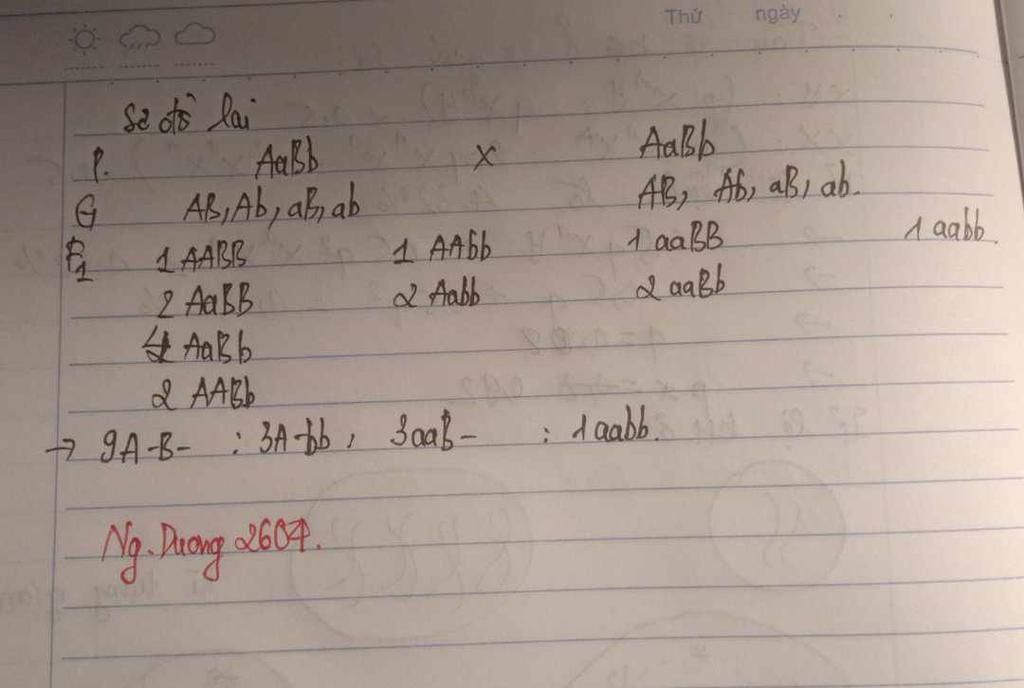 Thứ ngày
Sơ đồ lai
P. AaBb x AaBb
G AB, Ab, aB, ab AB, Ab, aB, ab.
F1 1 AABB 1 AAbb 1 aaBB 1 aabb.
2 AaBB 2 Aabb 2 aaBb
4 AaBb
2 AABb
→ 9A-B- : 3A-bb : 3aaB- : 1aabb.
Ng. Dương 2604.